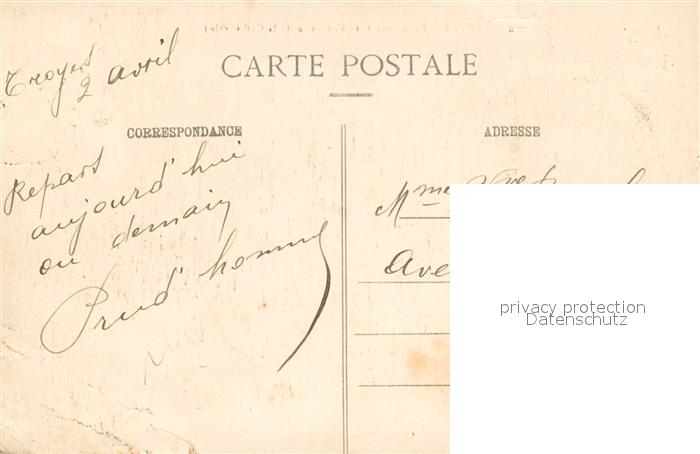 CARTE POSTALE
Troyes
2 avril
CORRESPONDANCE
ADRESSE
Repars
aujourd'hui
ou demain
Prud'homme
Mme Vve
Ave
privacy protection
Datenschutz